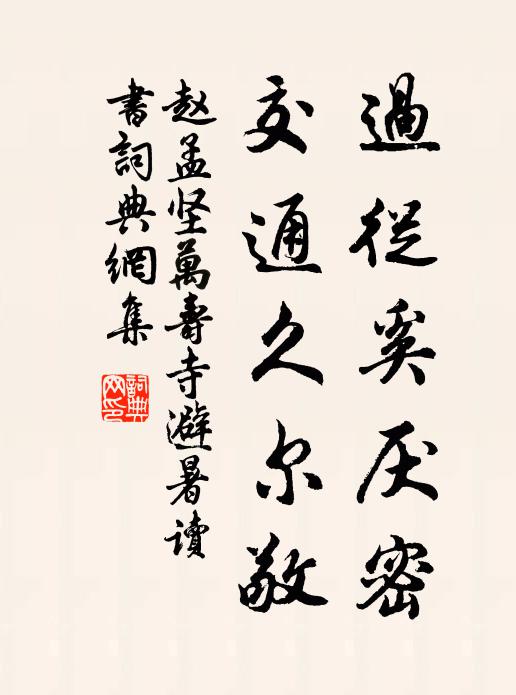 過從奚厌密
交通久尔敬
赵孟坚萬壽寺避暑读
書詞典網集
詞典
网印